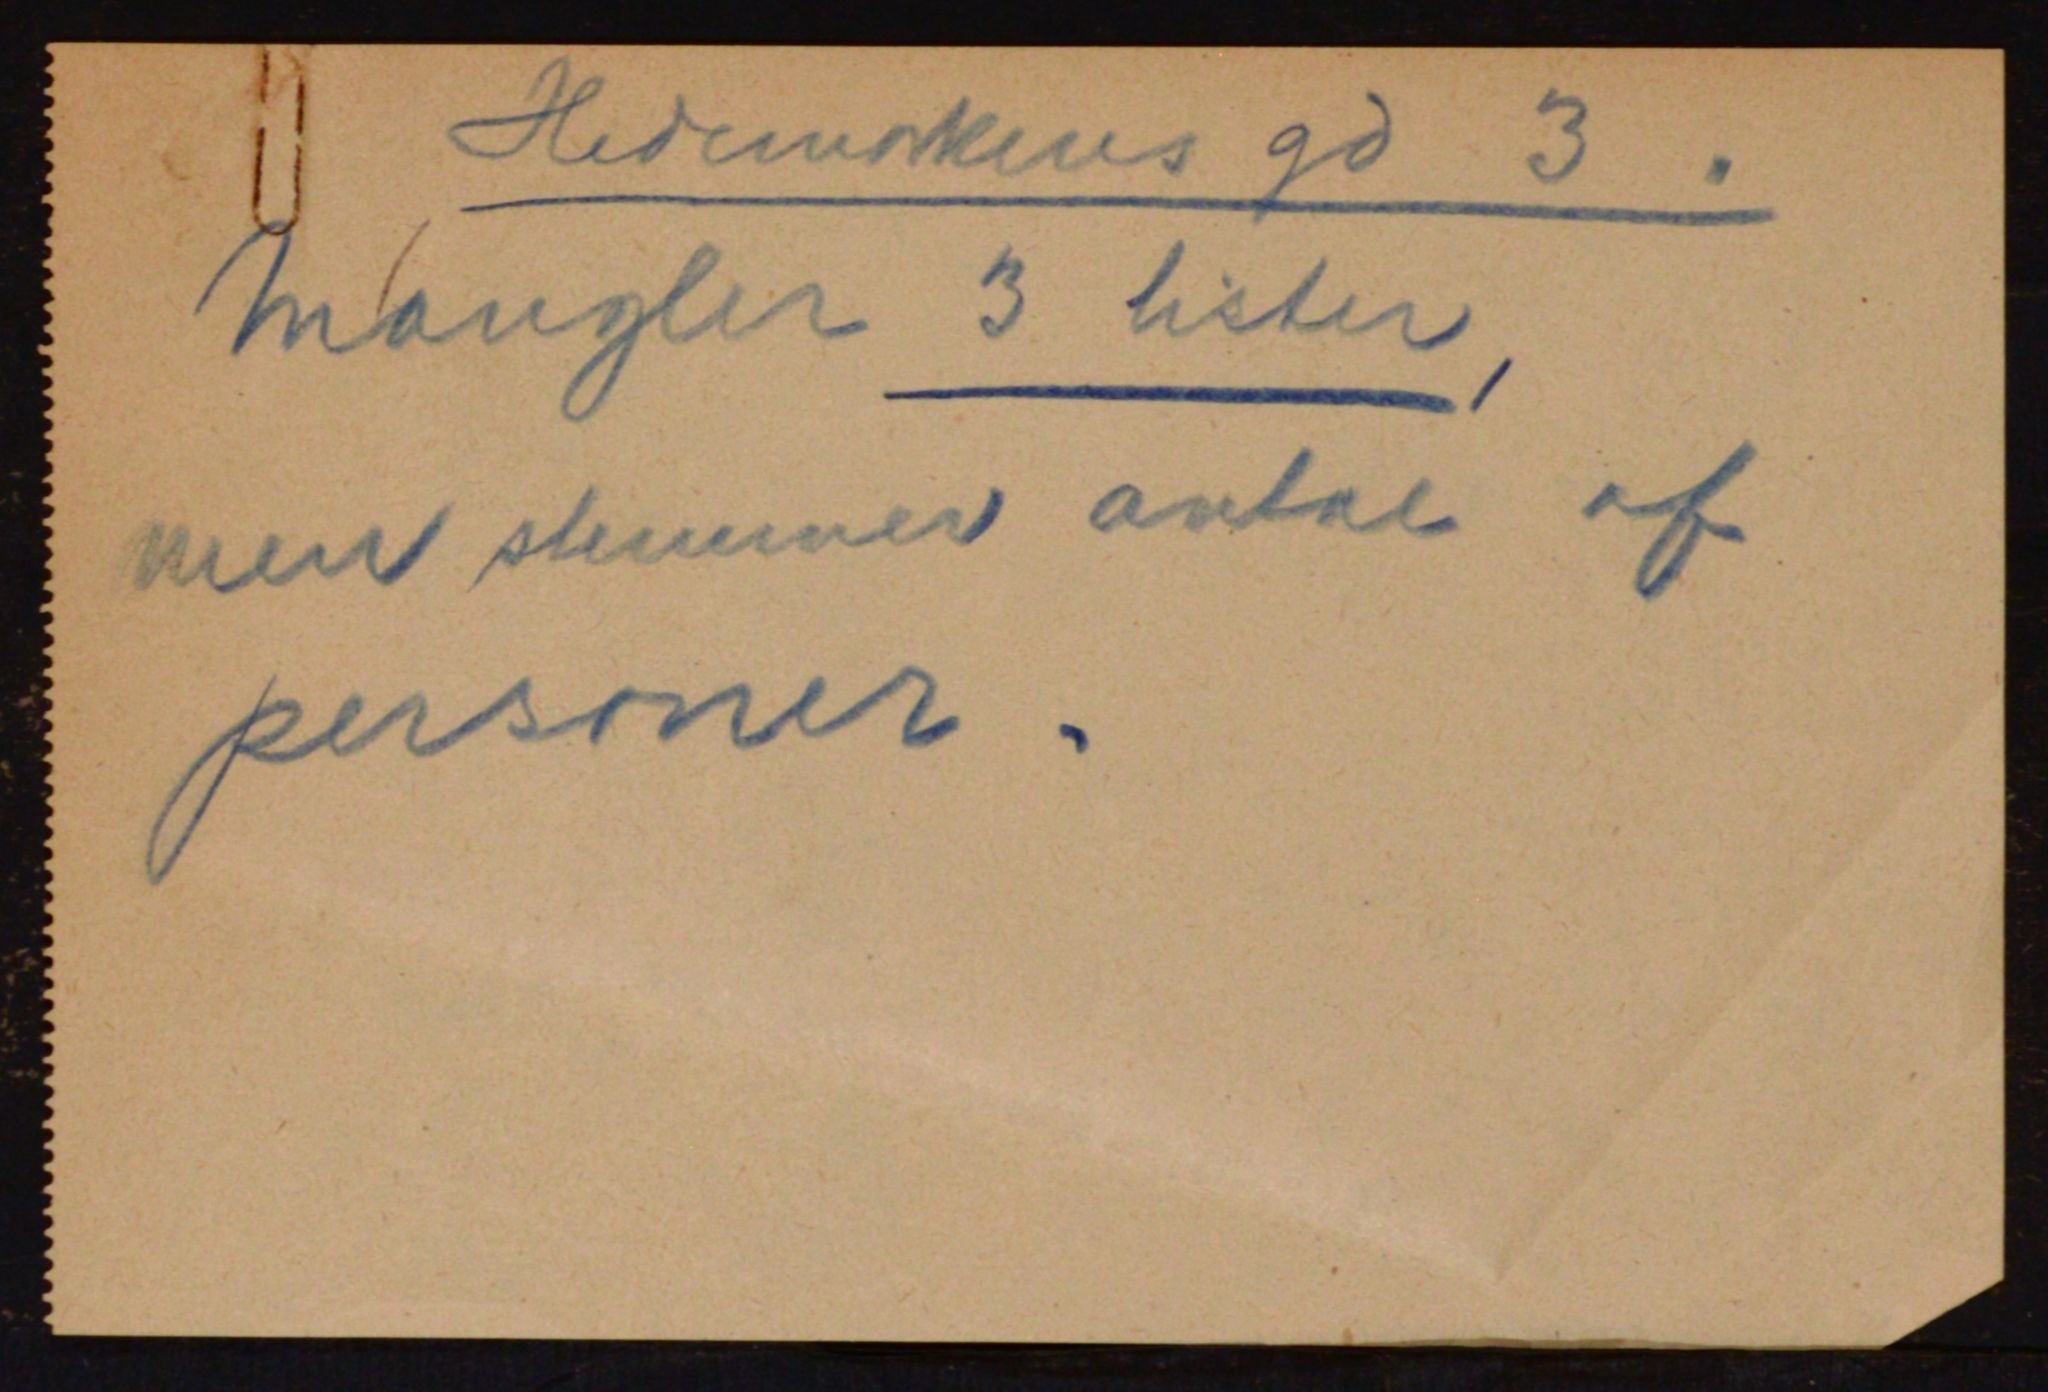 Hedemarkens gd 3.
Mangler 3 lister,
men stemmer antal af
personer.